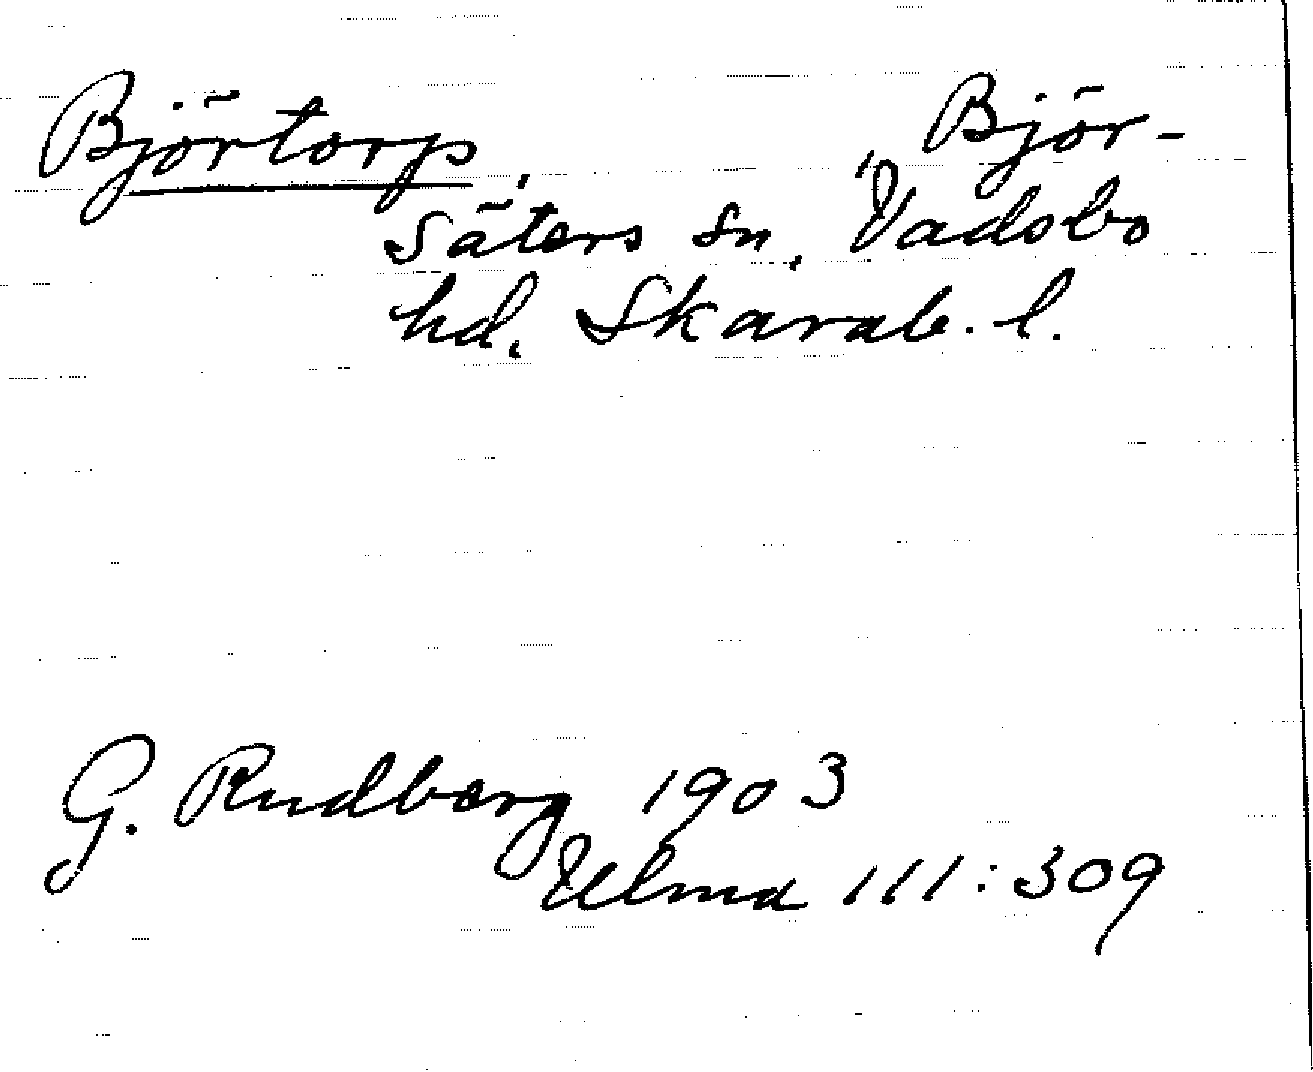 Björtorp, Björ-
säters sn, Vadsbo
hd, Skarab. l.
G. Rudberg 1903
Ulma 111:309